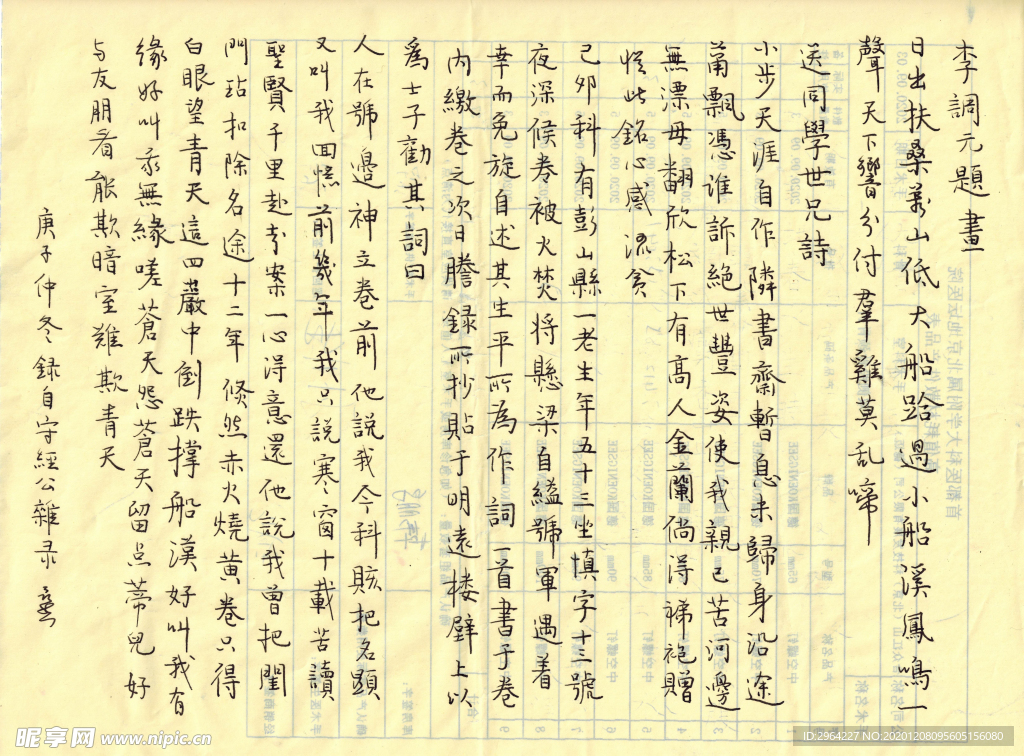 李調元題畫
日出扶桑萬山低大船跲過小船溪鳳鳴一
聲天下響分付羣雞莫乱啼
送同學世兄詩
小步天涯自作隣書齋暫息未歸身沿途
萬飄憑誰訴絕世豐姿使我親己苦河邊
無漂母翻欣松下有高人金蘭倘得祶袍贈
惟此銘心感流貪
己夘科有彭山縣一老生年五十三坐填字十三號
夜深候卷被火焚将懸梁自縊號軍遇着
幸而免旋自述其生平所為作詞一首書于卷
内繳卷之次日謄錄所抄貼于明遠楼壁上以
為士子勸其詞曰
人在號邊神立卷前他説我今科賅把名顯
又叫我回憶前幾年我只説寒窗十載苦讀
聖賢千里赴考案一心得意還他說我曽把閨
門玷扣除名途十二年倏然赤火燒黄卷只得
白眼望青天這四嚴中倒跌撑船漢好叫我有
緣好叫我無緣嗟蒼天怨蒼天留与蒂兒好
与友朋看能欺暗室难欺青天
庚子仲冬録自守經公雜录
昵享网 www.nipic.cn
ID:2964227 NO:20201208095605156080